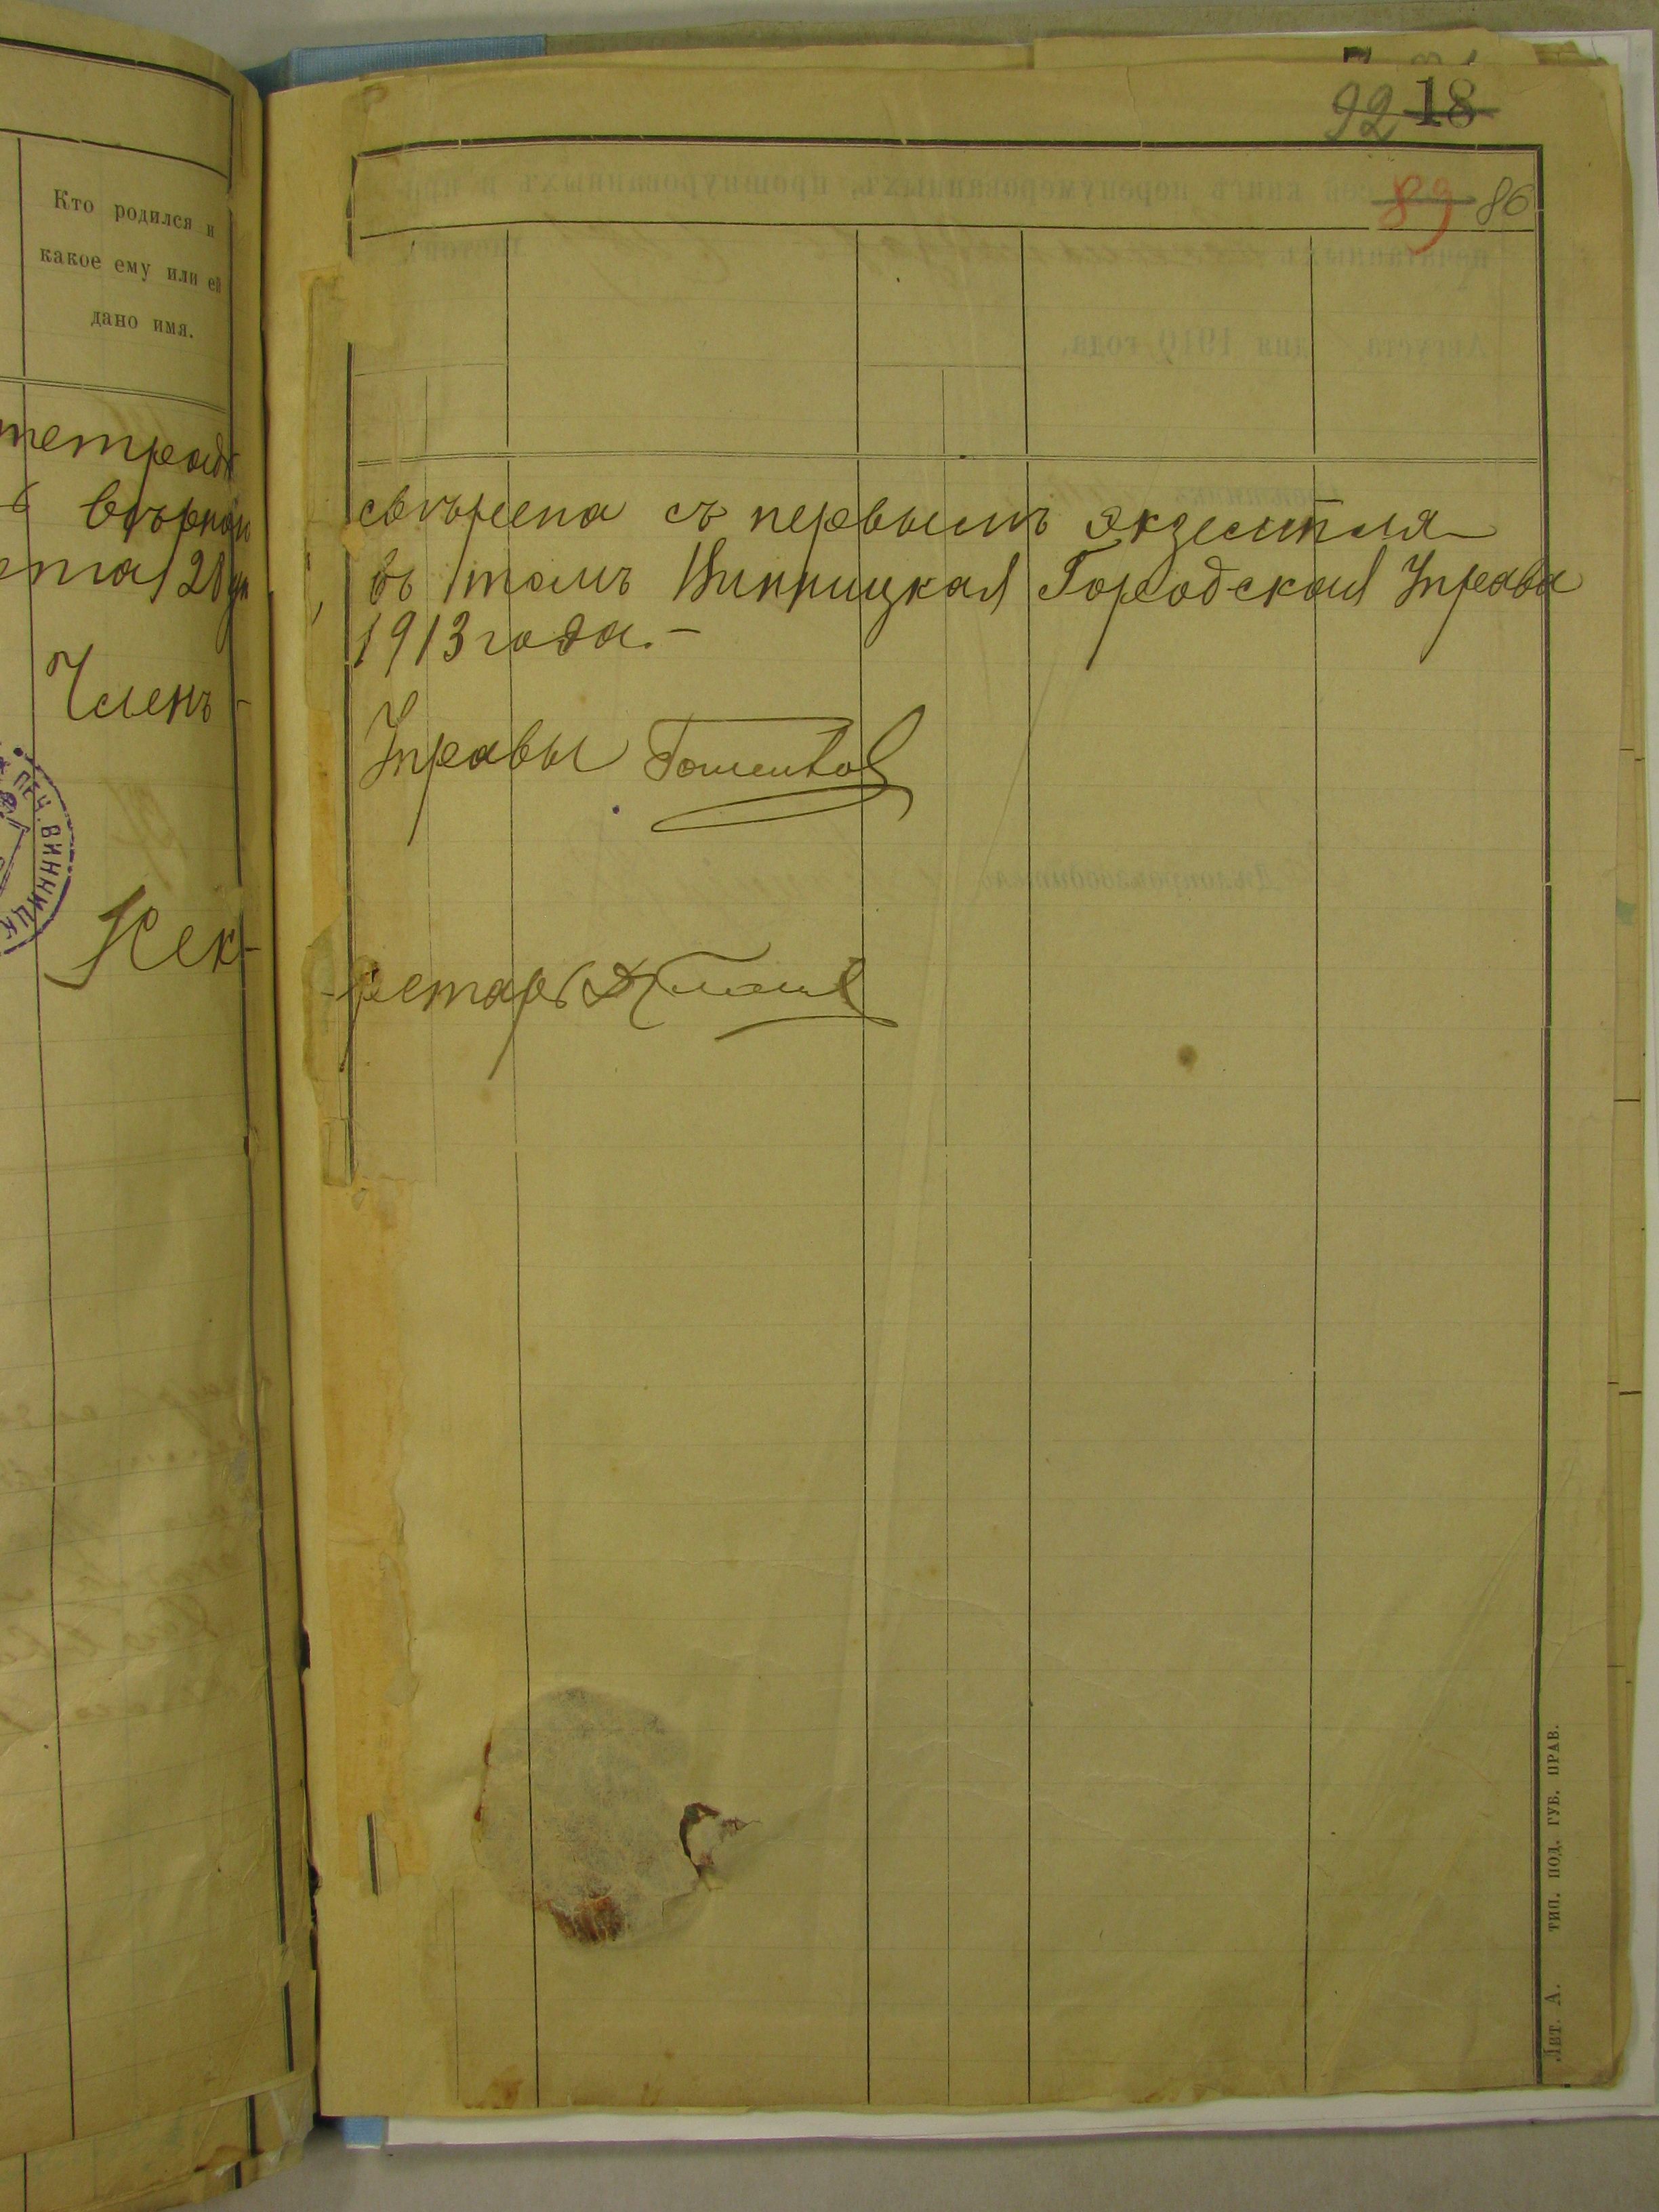 92 18
89 86
Кто родился и
какое ему или ей
дано имя.
тетрадь
вѣрной
марта 28 дня
Членъ-
ПЕЧ. ВИННИЦК
Сек-
свѣрена съ первымъ экземпля-
въ томъ Винницкая Городская Управа
1913 года.-
Управы
-ретарь
Лит. А. ТИП. ПОД. ГУБ. ПРАВ.